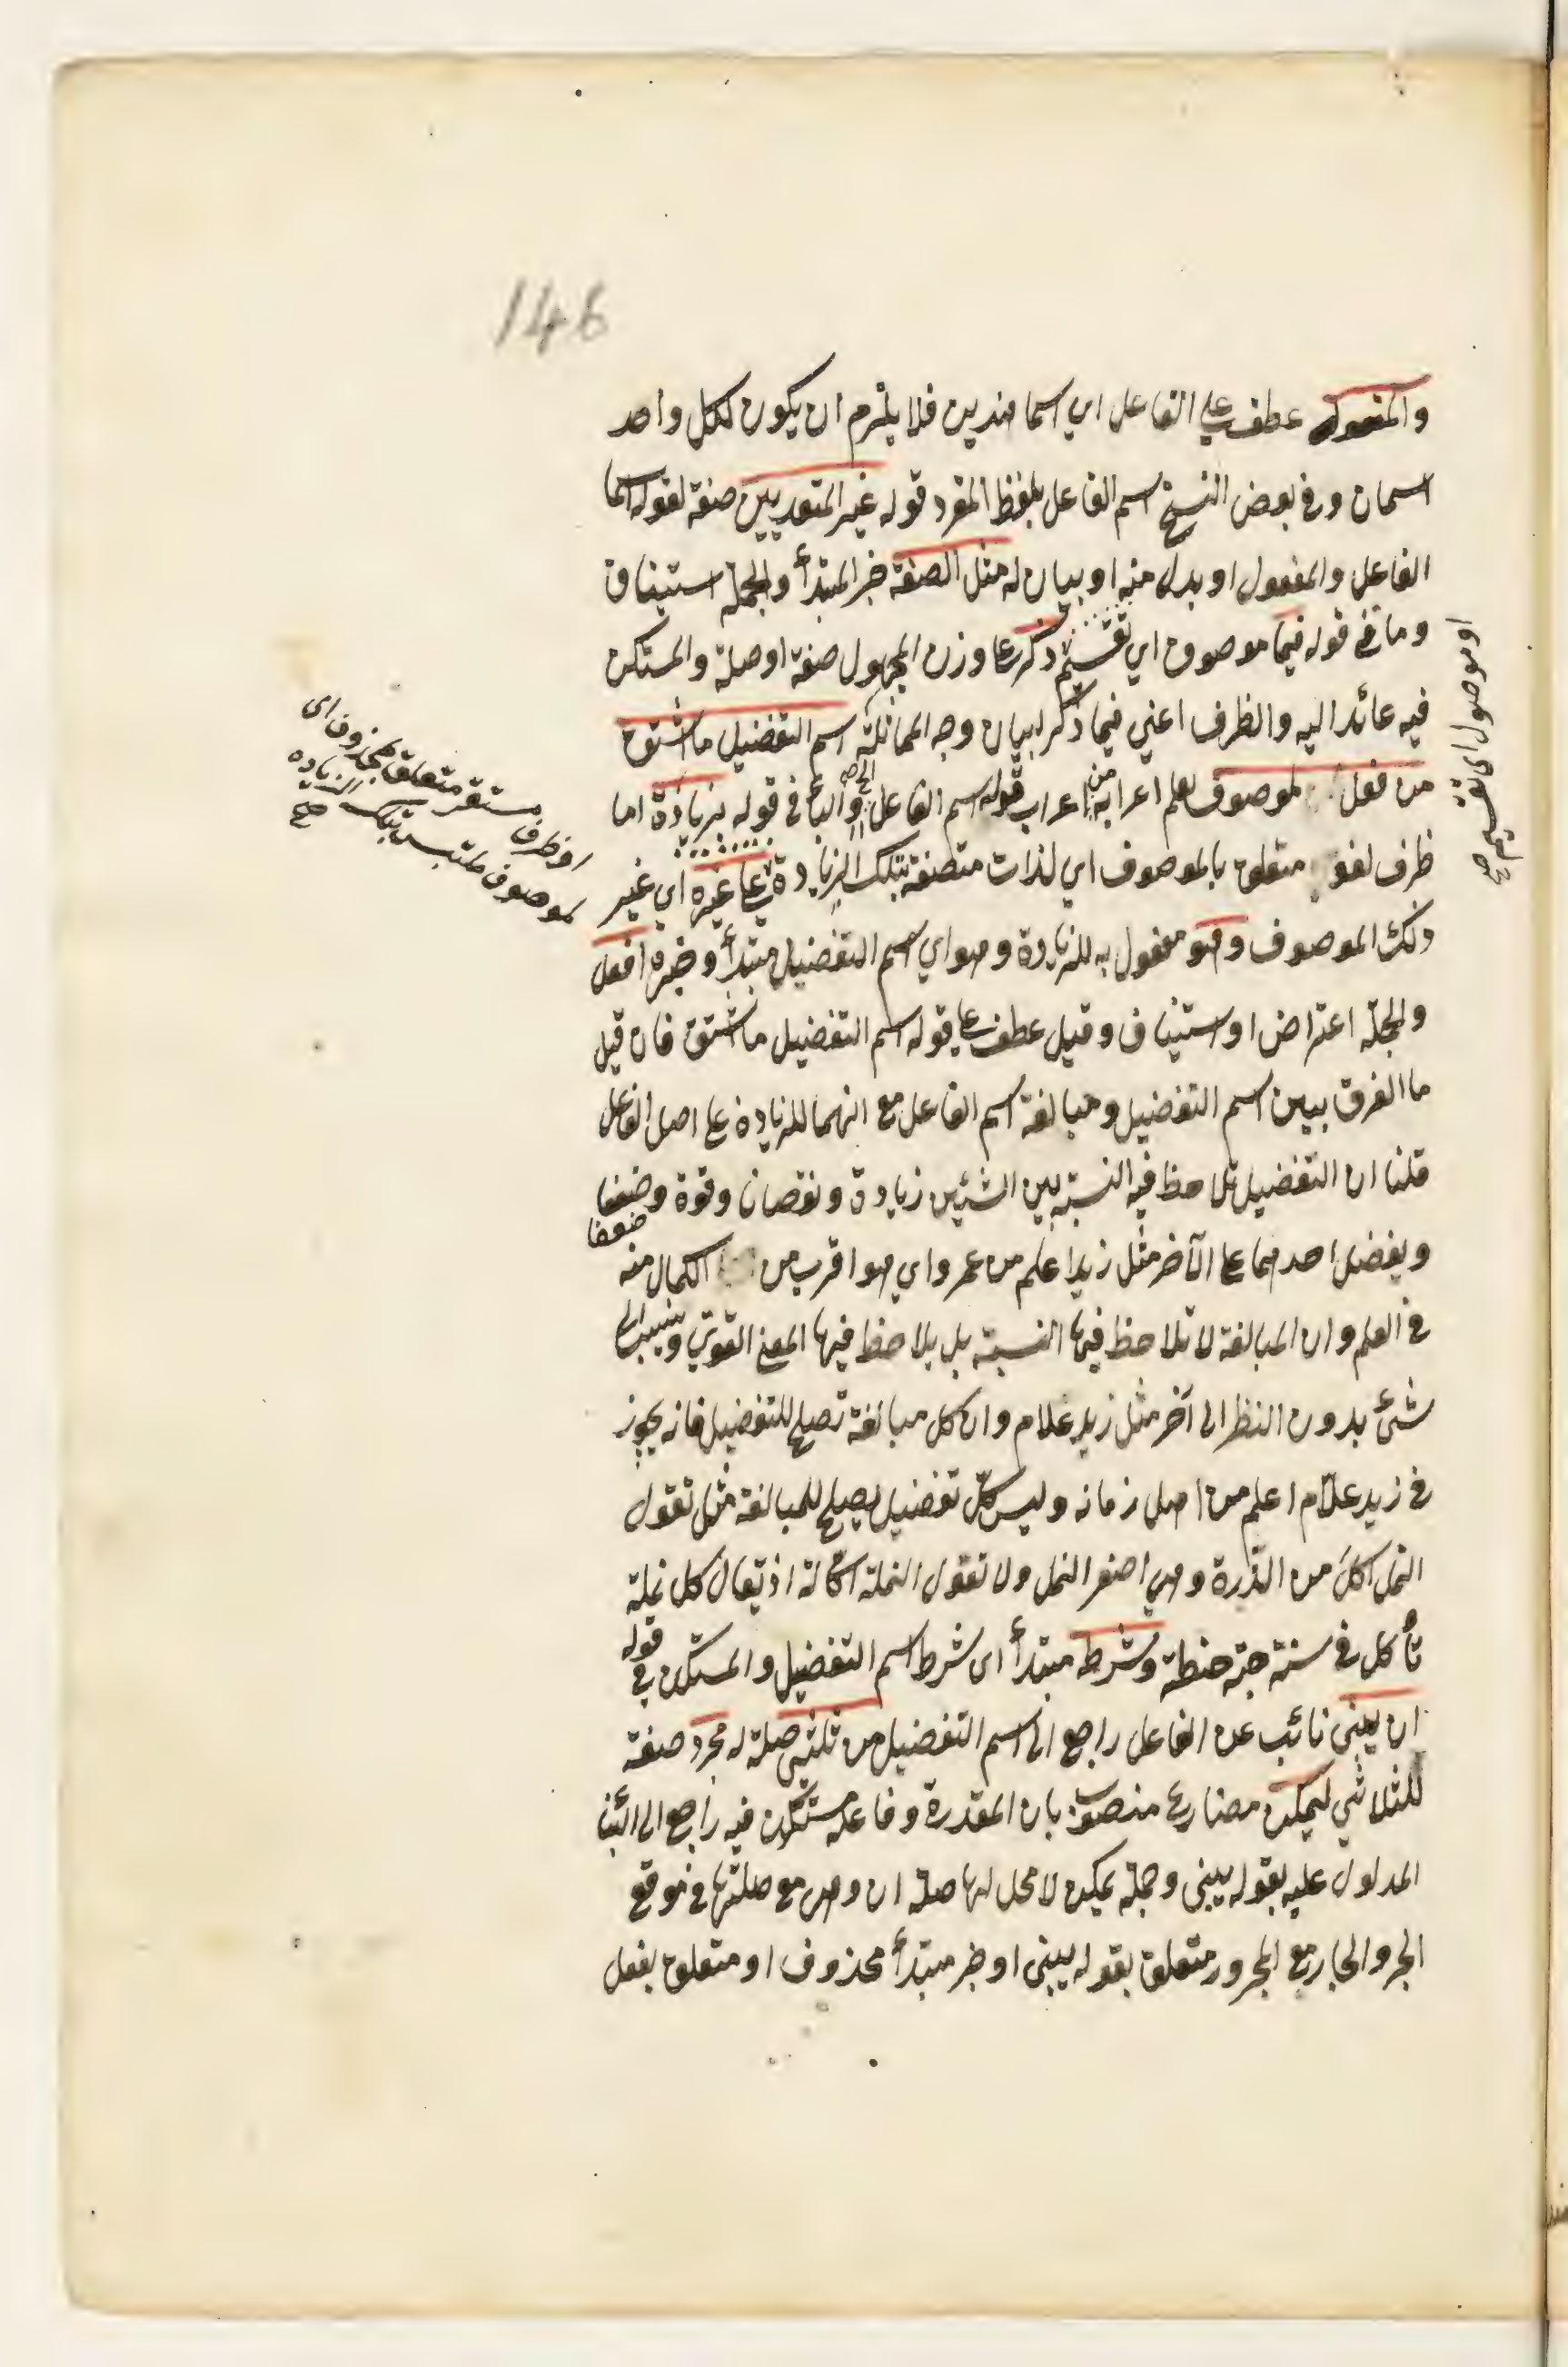 146
والمفعول عطف على الفاعل اي اسما هذين فلا يلزم ان يكون لكل واحد
اسمان وفي بعض النسخ اسم الفاعل بلفظ المفرد قوله غير المتعديين صفة لقوله اسما
الفاعل والمفعول او بدل منه او بيان له مثل الصفة خبر المبتدأ والجملة استيناف
وما في قوله فيما موصوف اي تقسيم ذكر على وزن المجهول صفة او صلة والمستكن
او موصول اي التقسيم صح
فيه عائد اليه والظرف اعني فيما ذكر لبيان وجه المماثلة اسم التفضيل ما اشتق
من فعل لموصوف يعلم اعرابه من اعراب قوله اسم الفاعل الخ والباء في قوله بزيادة اما
ظرف لغو متعلق بالموصوف اي لذات متصفة بتلك الزيادة على غيره اي غير
او ظرف مستقر متعلق بمحذوف اي
لموصوف ملتبس بتلك الزيادة
صح
ذلك الموصوف وهو مفعول به للزيادة وهو اي اسم التفضيل مبتدأ وخبره افعل
والجملة اعتراض او استيناف وقيل عطف على قوله اسم التفضيل ما اشتق فان قيل
ما الفرق بين اسم التفضيل ومبالغة اسم الفاعل مع انهما للزيادة على اصل الفاعل
قلنا ان التفضيل تلاحظ فيه النسبة بين الشيئين زيادة ونقصانا وقوة وضعفا
ضعفا
ويفضل احدهما على الآخر مثل زيد اعلم من عمرو اي هو اقرب من الكمال منه
في العلم وان المبالغة لا تلاحظ فيها النسبة بل يلاحظ فيها المعنى القوي وينسب الى
شئ بدون النظر الى آخر مثل زيد علام وان كل مبالغة تصلح للتفضيل فانه يجوز
في زيد علّام اعلم من اهل زمانه وليس كل تفضيل يصلح للمبالغة مثل تقول
النمل اكل من الذرة وهي اصغر النمل ولا تقول النملة اكالة اذ يقال كل نملة
تأكل في سنة حبة حنطة وشرطه مبتدأ اى شرط اسم التفضيل والمستكن في قوله
ان يبنى نائب عن الفاعل راجع الى اسم التفضيل من ثلثى صلة له مجرد صفة
للثلاثي ليمكن مضارع منصوب بان المقدرة وفاعله مستكن فيه راجع الى البناء
المدلول عليه بقوله يبنى وجملة يمكن لا محل لها صلة ان وهي مع صلتها في موقع
الجر والجار مع المجرور متعلق بقوله يبنى او خبر مبتدأ محذوف او متعلق بفعل